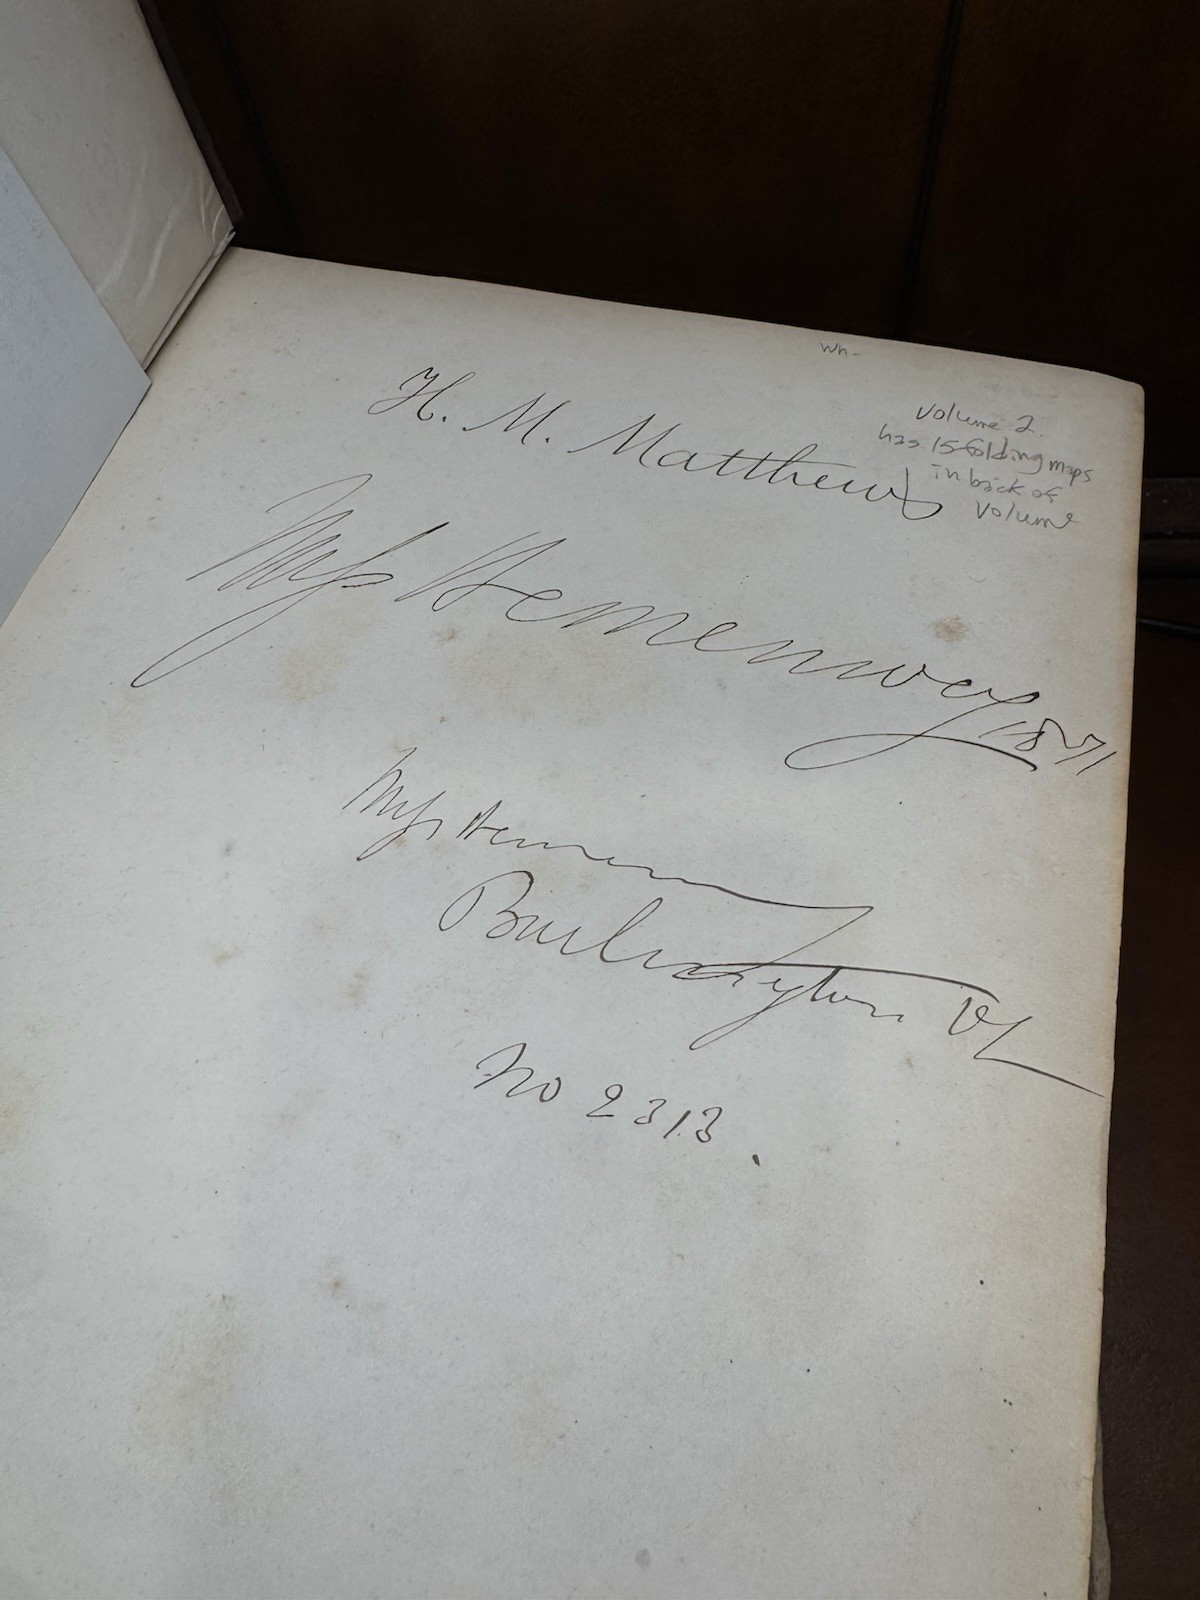 wh-
H. M. Matthews
Volume 2.
has 15 folding maps
in back of
volume
Miss Hemenway 1871
Miss
Burlington Vt
No 2313.